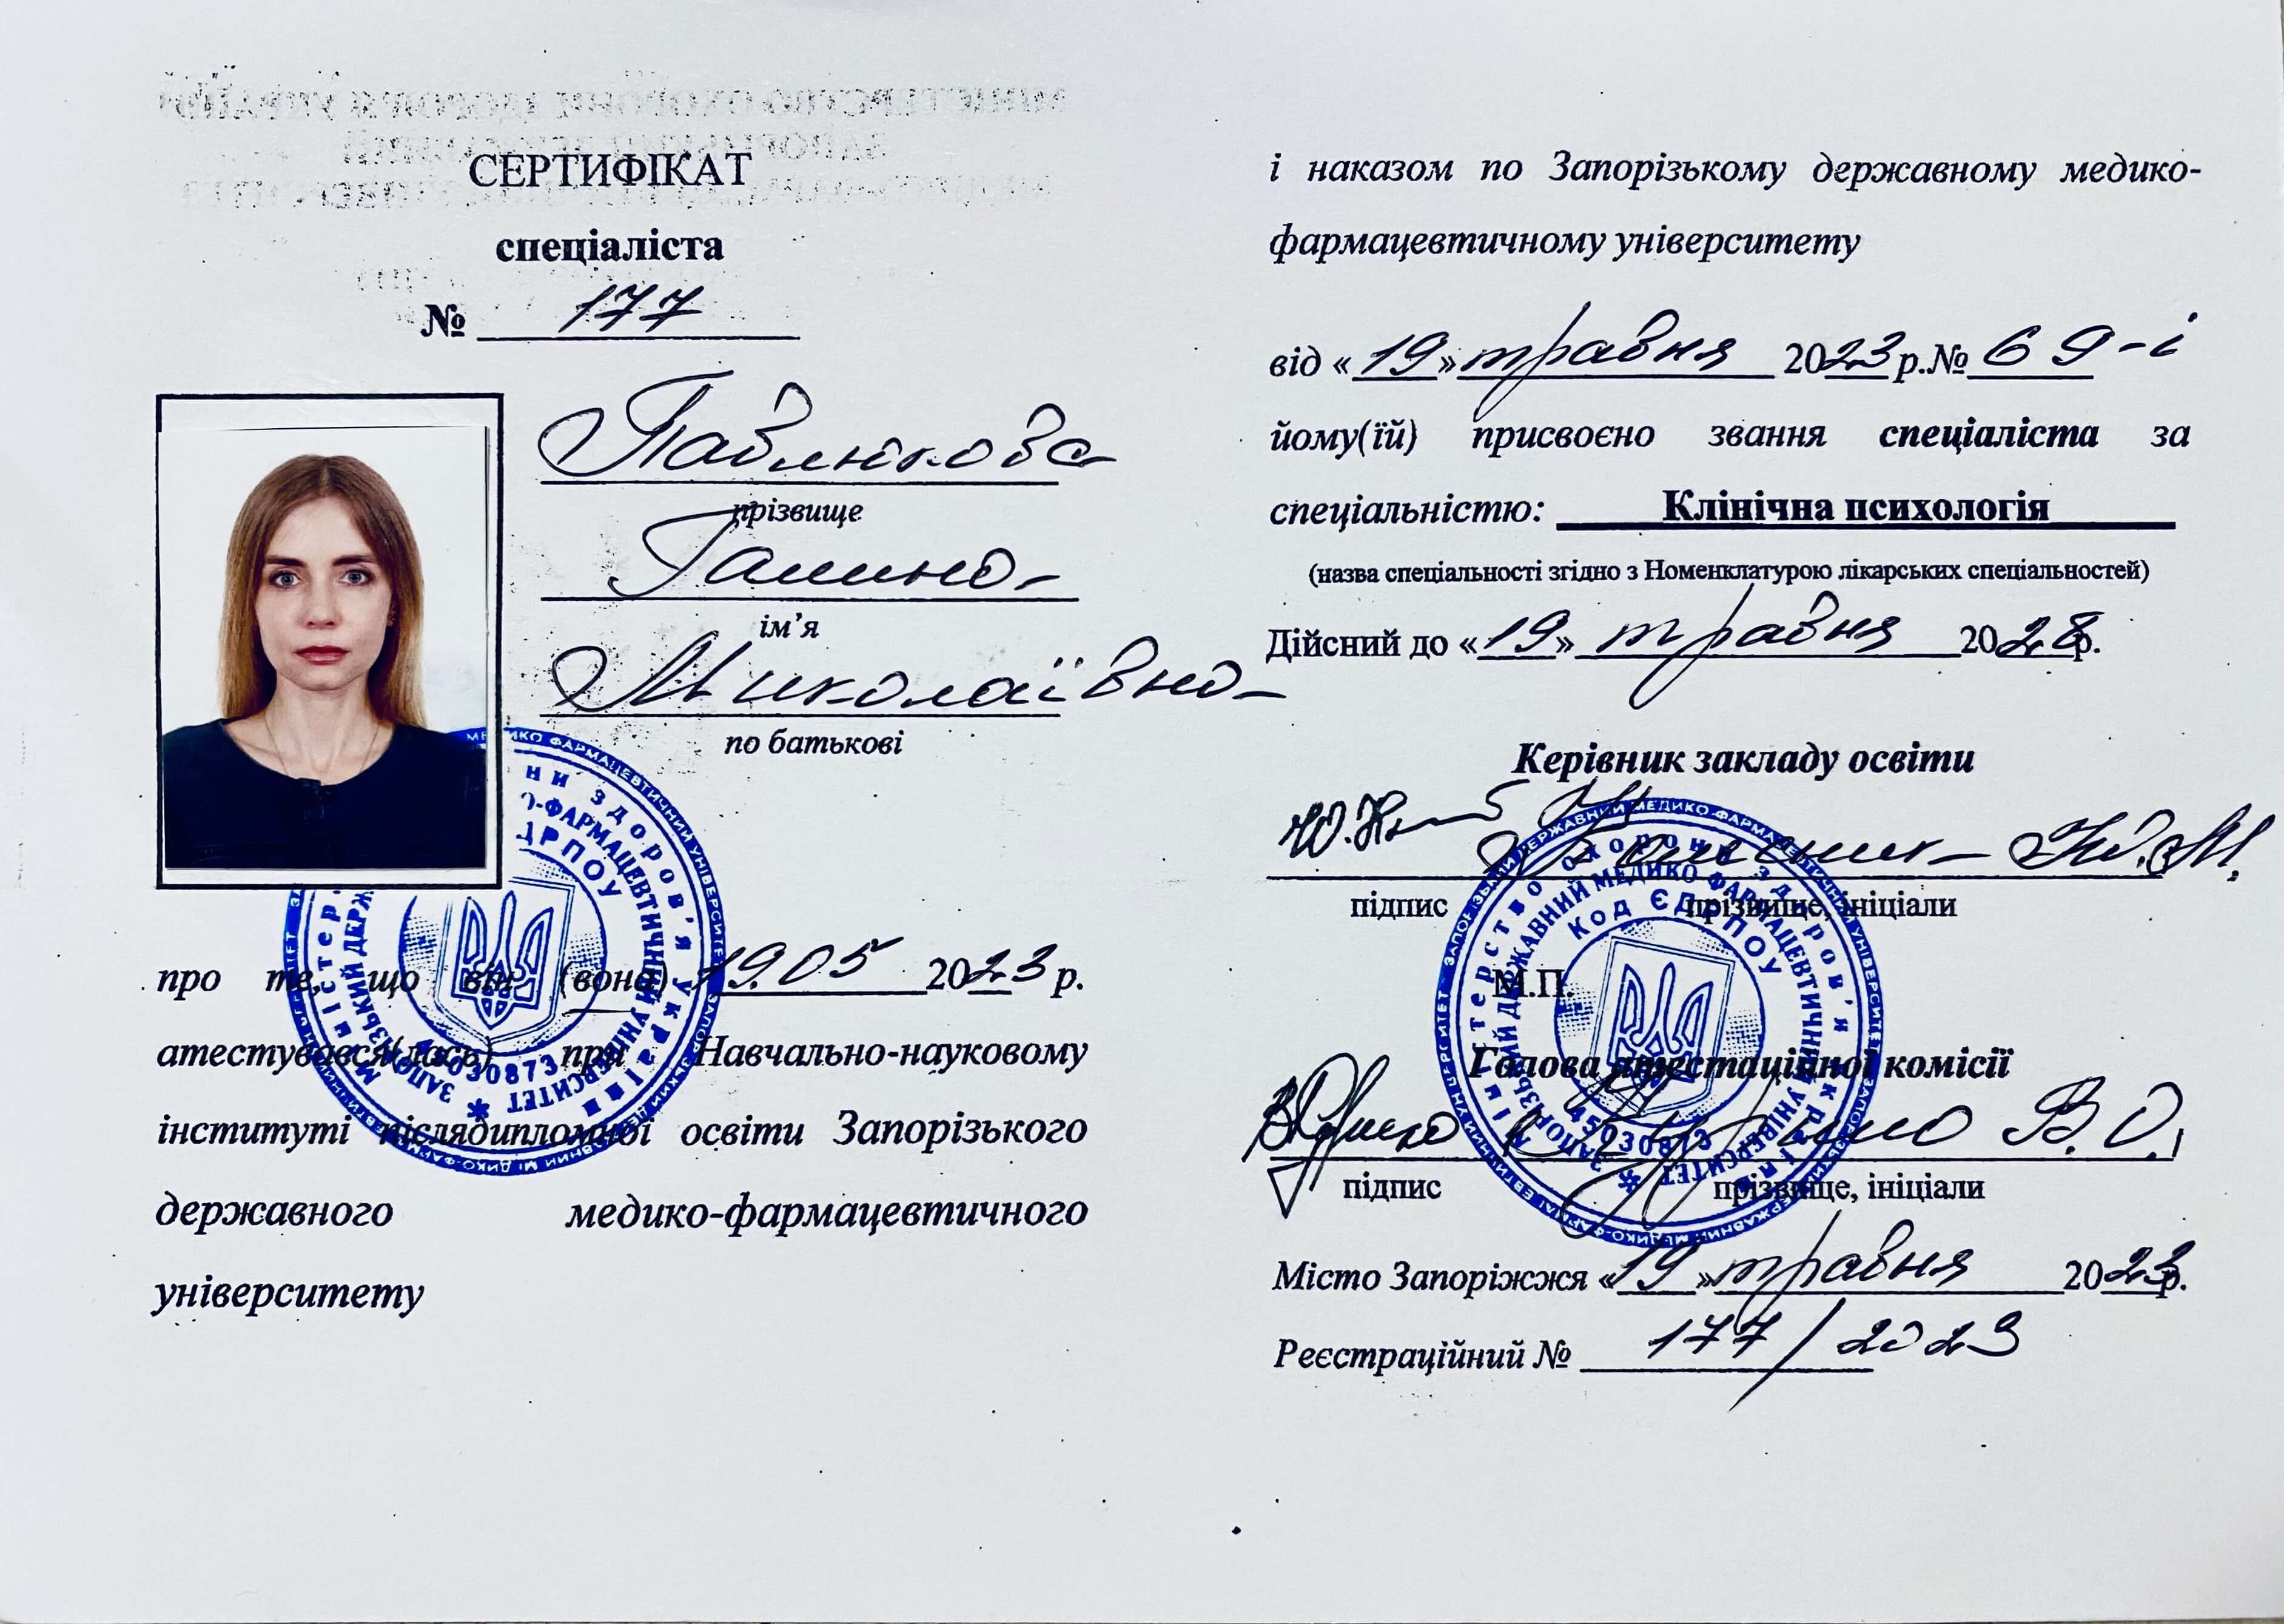 СЕРТИФІКАТ
спеціаліста
№ 177
Павлюкова
прізвище
Галина
ім’я
Миколаївна
по батькові
про те, що він (вона) 19.05 2023 р.
атестувався(лась) при Навчально-науковому
інституті післядипломної освіти Запорізького
державного медико-фармацевтичного
університету
і наказом по Запорізькому державному медико-
фармацевтичному університету
від «19» травня 2023 р.№ 69-і
йому(їй) присвоєно звання спеціаліста за
спеціальністю: Клінічна психологія
(назва спеціальності згідно з Номенклатурою лікарських спеціальностей)
Дійсний до «19» травня 2028р.
Керівник закладу освіти
Ю.М.
підпис прізвище, ініціали
М.П.
Голова атестаційної комісії
В.О.
підпис прізвище, ініціали
Місто Запоріжжя «19» травня 2023р.
Реєстраційний № 177/2023
Міністерство охорони здоров’я України
Запорізький державний медико-фармацевтичний університет
Код ЄДРПОУ
45030873